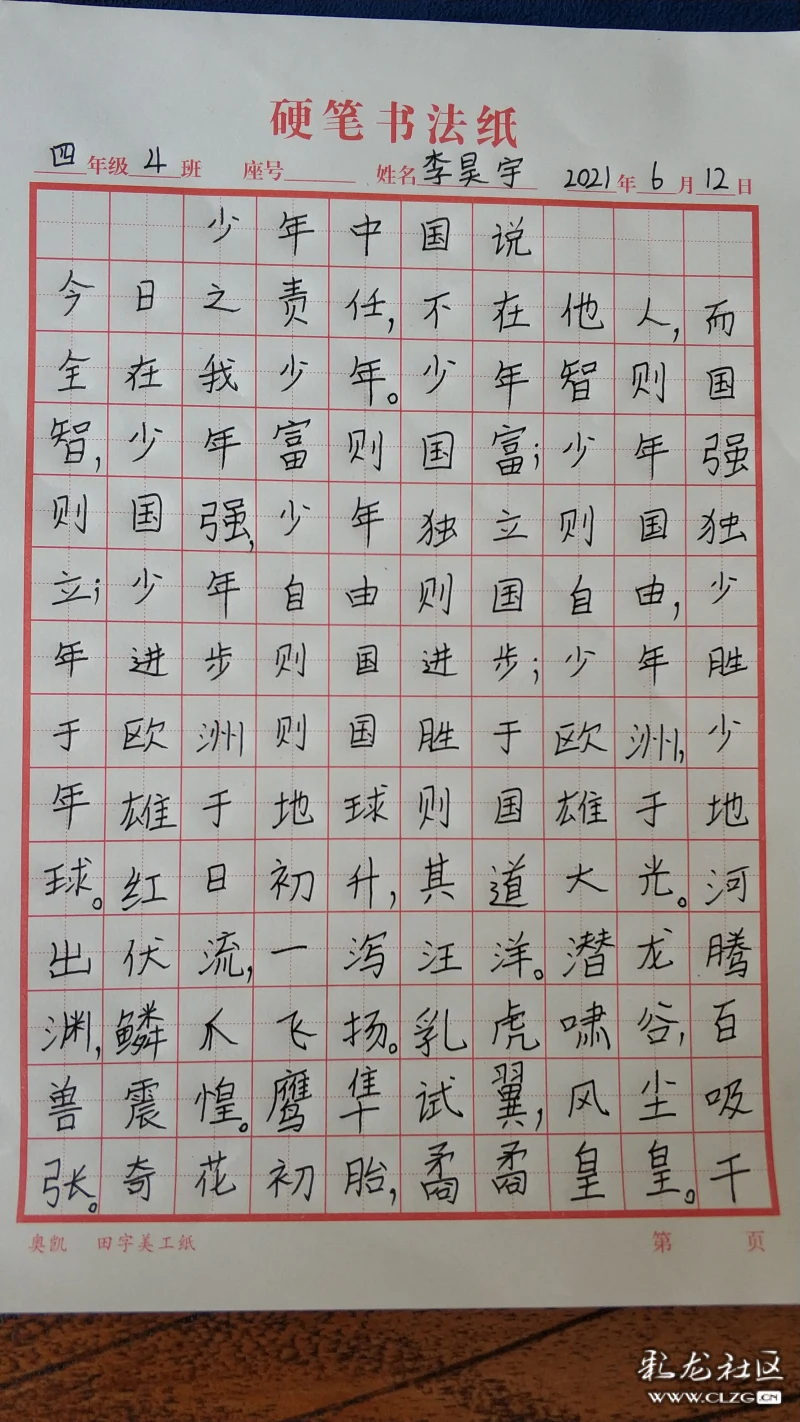 硬笔书法纸
四年级 4 班 座号 姓名 李昊宇 2021年 6 月 12 日
少年中国说
今日之责任,不在他人,而
全在我少年。少年智则国
智,少年富则国富;少年强
则国强,少年独立则国独
立;少年自由则国自由,少
年进步则国进步;少年胜
于欧洲则国胜于欧洲,少
年雄于地球则国雄于地
球。红日初升,其道大光。河
出伏流,一泻汪洋。潜龙腾
渊,鳞爪飞扬。乳虎啸谷,百
兽震惶。鹰隼试翼,风尘吸
张。奇花初胎,矞矞皇皇。干
奥凯 田字美工纸 第 页
彩龙社区
WWW.CLZG.CN